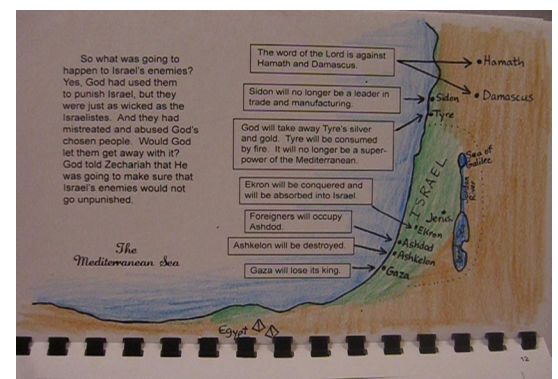 So what was going to
happen to Israel's enemies?
Yes, God had used them
to punish Israel, but they
were just as wicked as the
Israelistes. And they had
mistreated and abused God's
chosen people. Would God
let them get away with it?
God told Zechariah that He
was going to make sure that
Israel's enemies would not
go unpunished.
The
Mediterranean Sea
The word of the Lord is against
Hamath and Damascus.
Sidon will no longer be a leader in
trade and manufacturing.
God will take away Tyre's silver
and gold. Tyre will be consumed
by fire. It will no longer be a super-
power of the Mediterranean.
Ekron will be conquered and
will be absorbed into Israel.
Foreigners will occupy
Ashdod.
Ashkelon will be destroyed.
Gaza will lose its king.
Hamath
Damascus
Sidon
Tyre
Sea of
Galilee
ISRAEL
Jordan
River
Jerus.
Ekron
Ashdod
Ashkelon
Gaza
Egypt
12